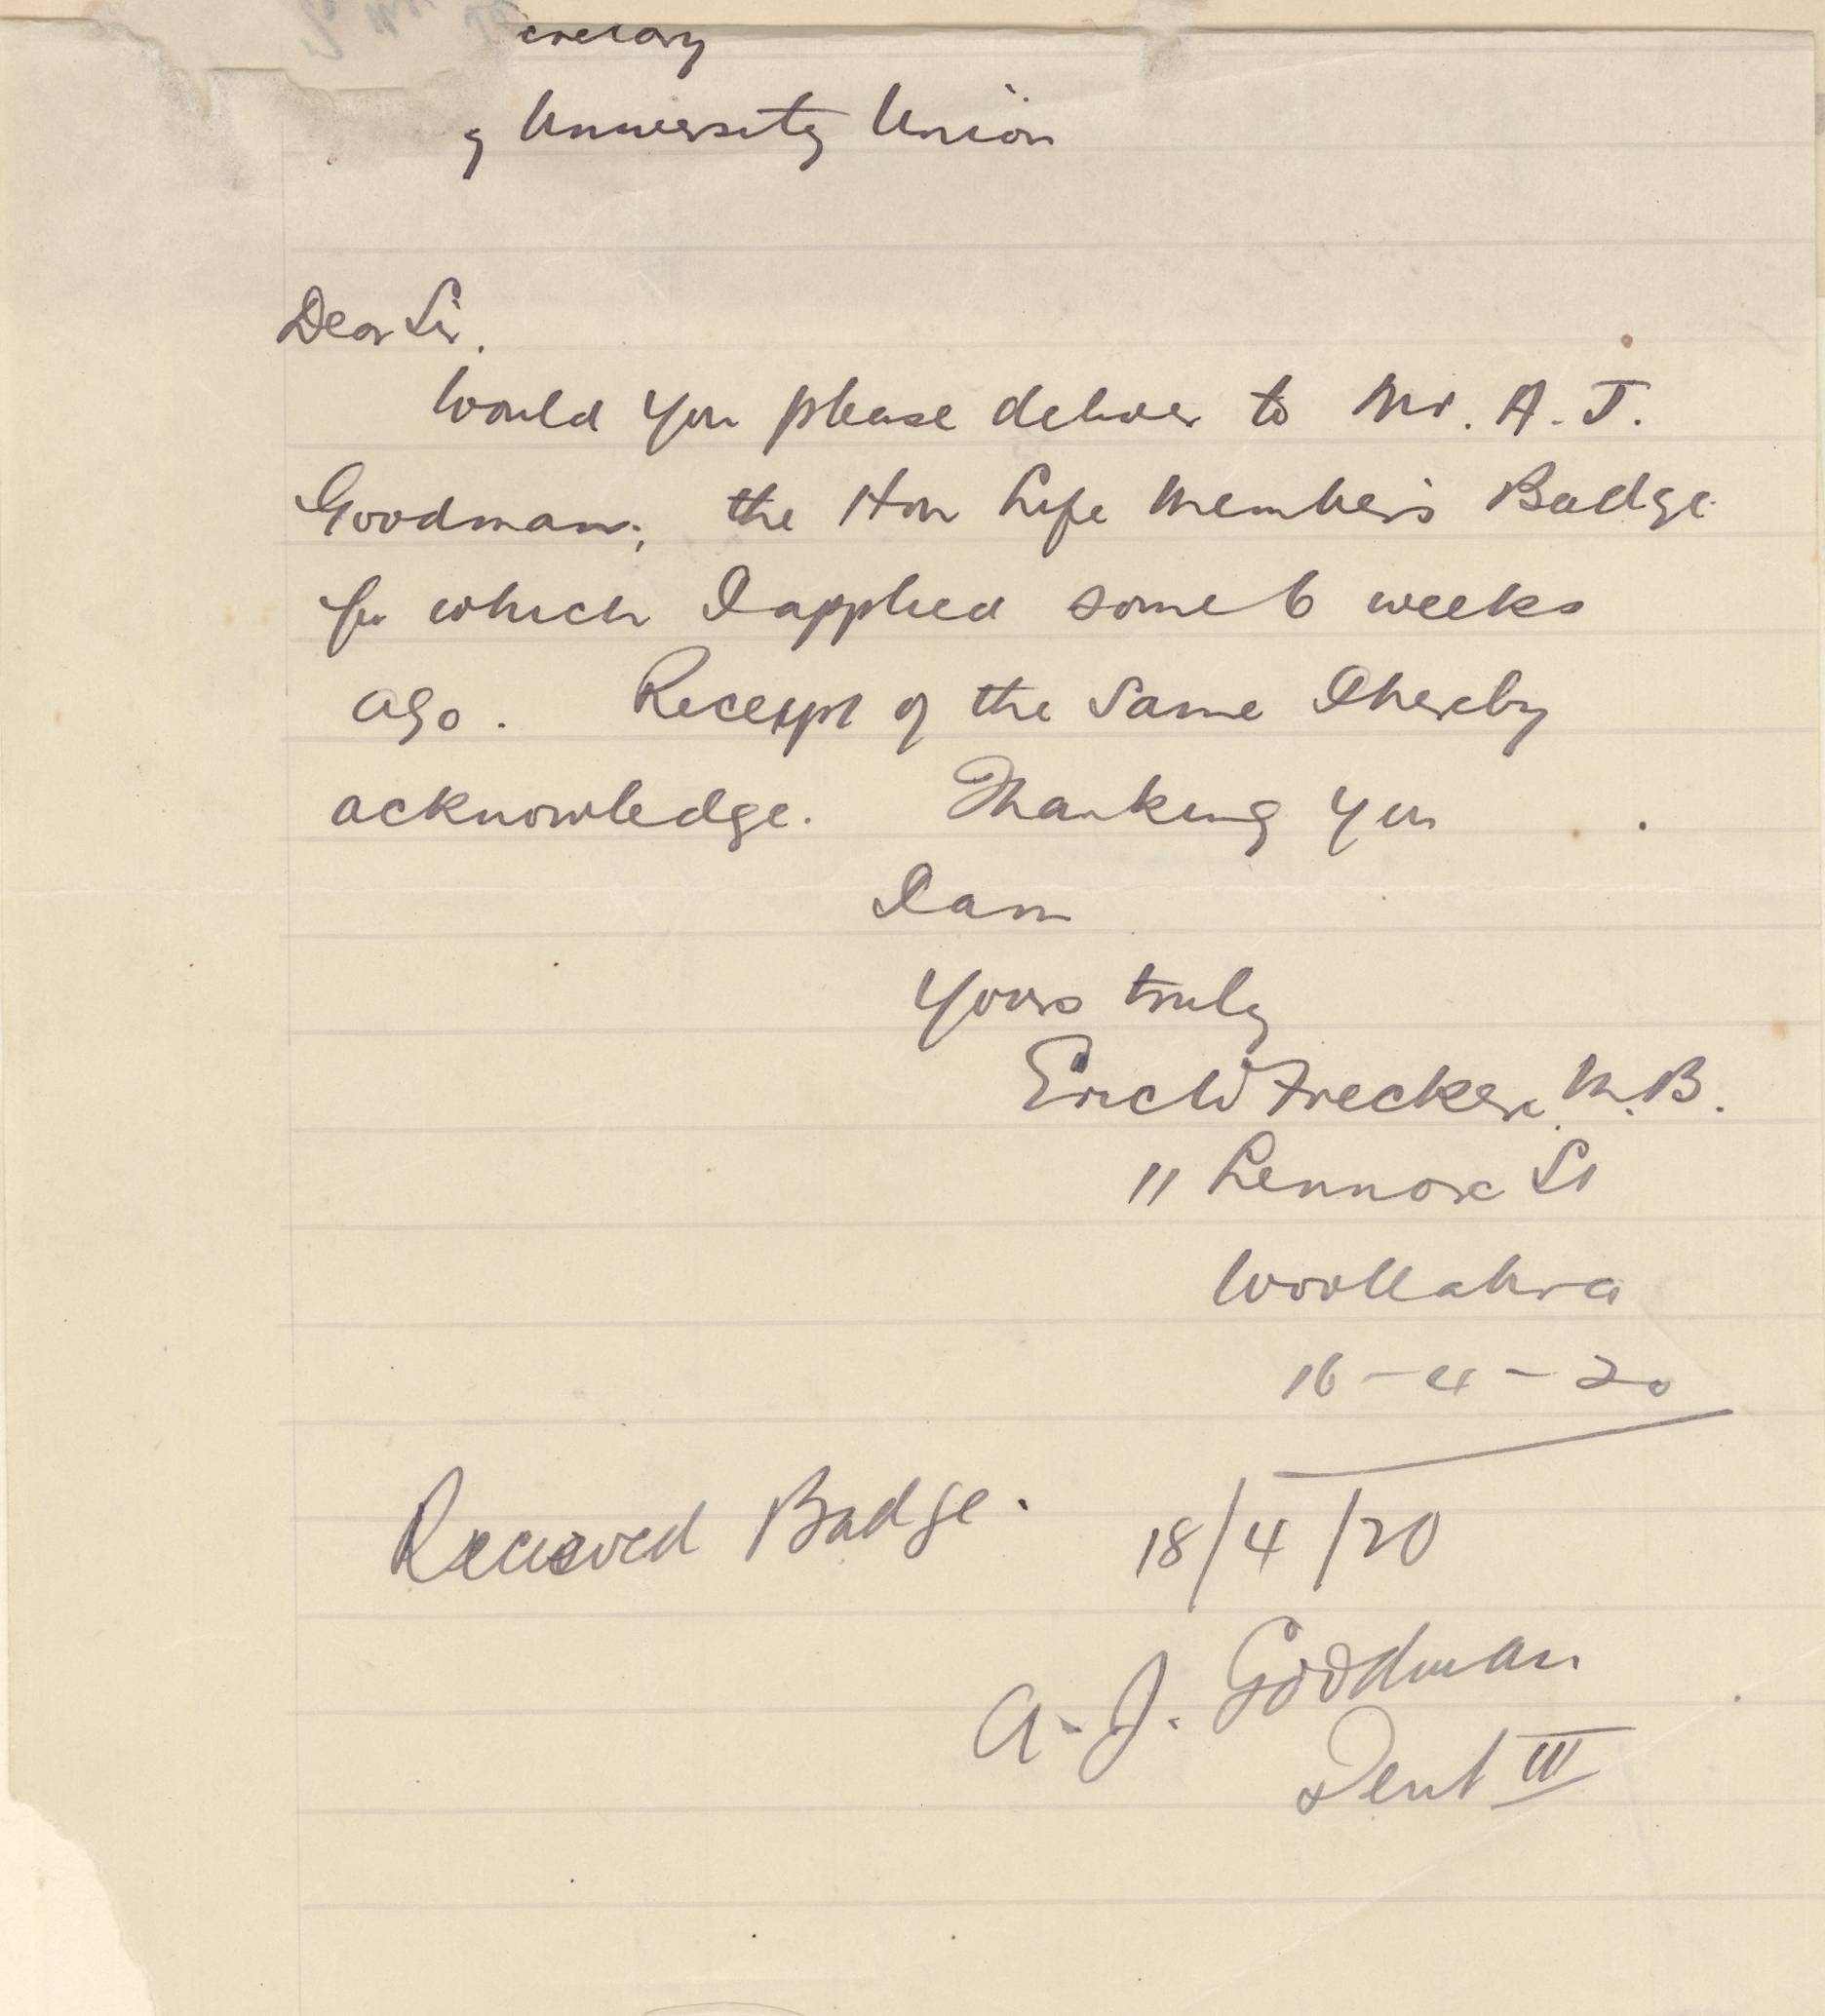 ecretary
y University Union
Dear Sir.
Would you please deliver to Mr. A. J.
Goodman; the Hon Life Member's Badge
for which I applied some 6 weeks
ago. Receipt of the same I hereby
acknowledge. Thanking you
I am
Yours truly
Eric W Frecker. M.B.
11 Lennox St
Woollahra
16-4-20
Received Badge. 18/4/20
A. J. Goodman
Dent III